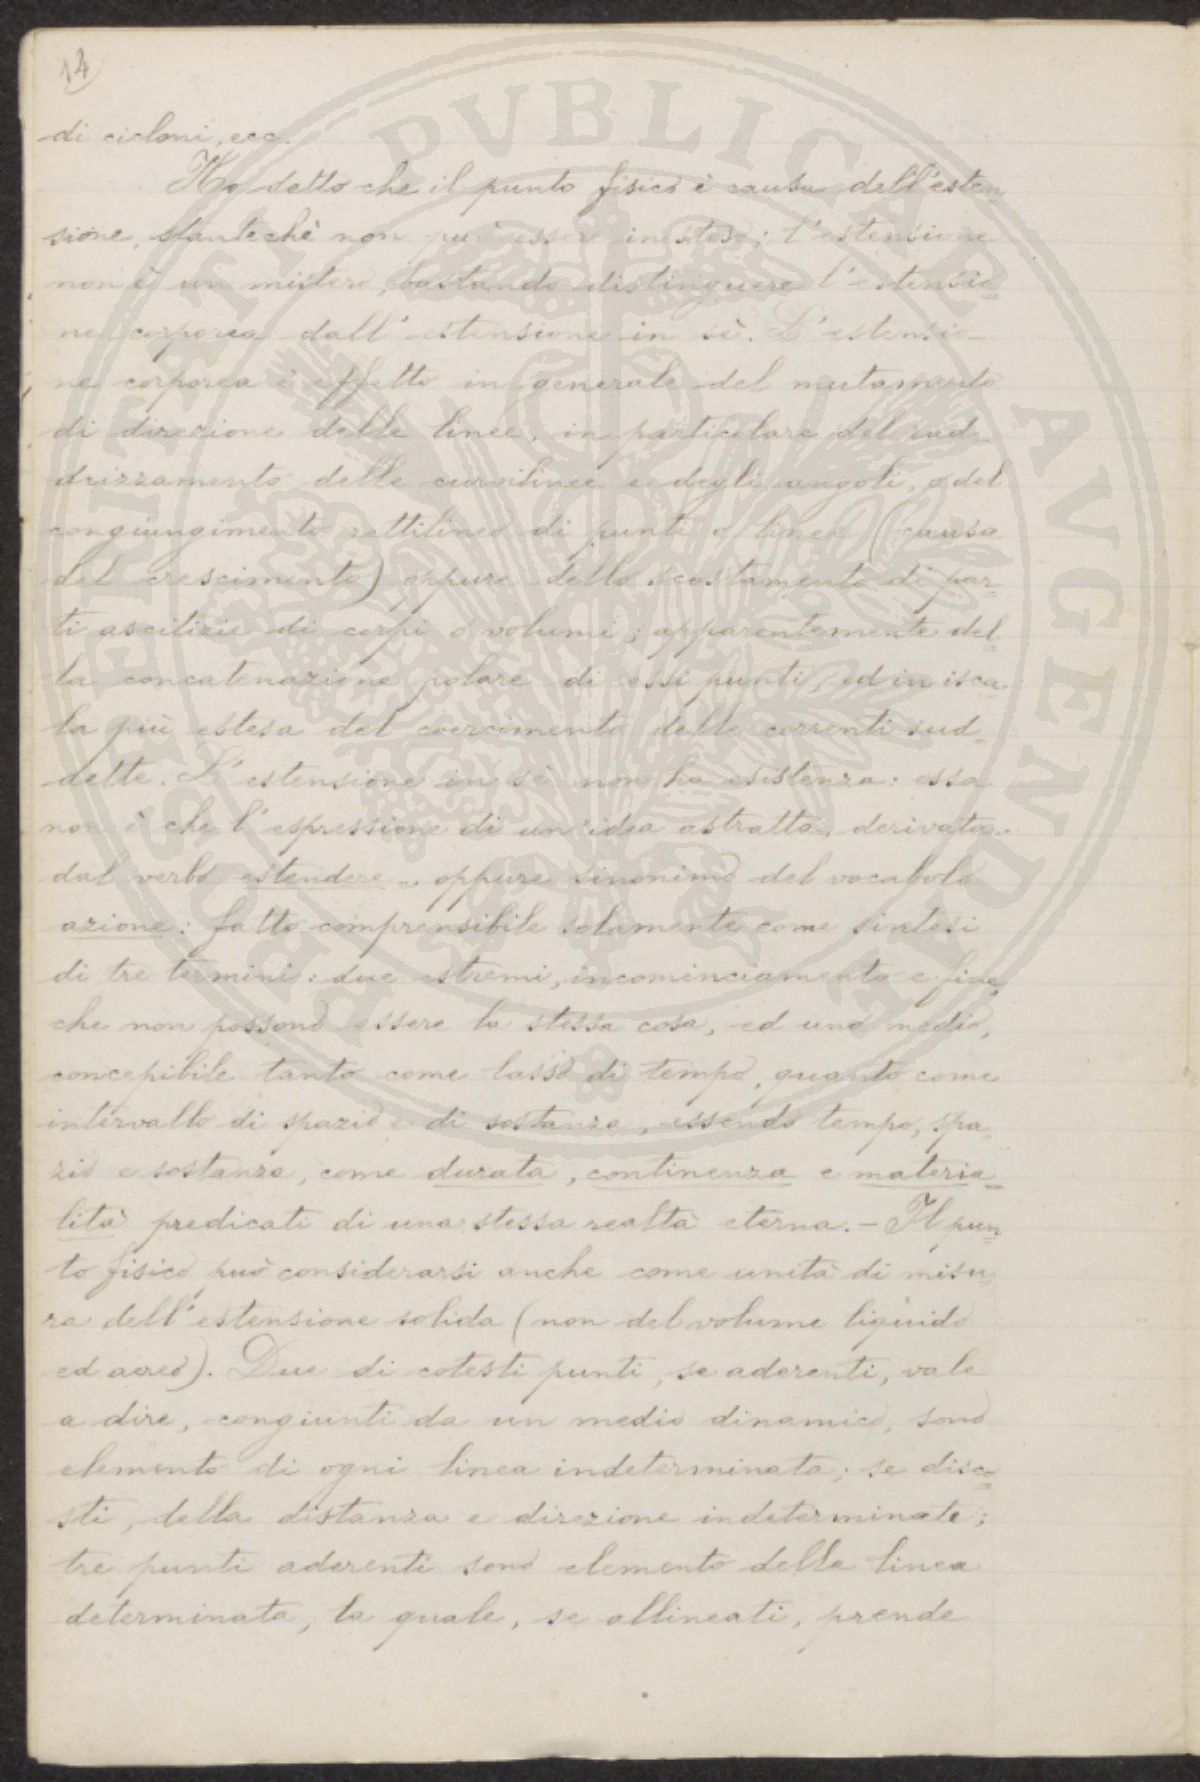 14
di cicloni, ecc.
Ho detto che il punto fisico è causa dell'esten
sione, stantechè non può essere in stesso; l'estensione
non è un mistero, bastando distinguere l'estensio
ne corporea dall'estensione in sè. L'estensio-
ne corporea è effetto in generale del mutamento
di direzione delle linee, in particolare del rad-
drizzamento delle curvilinee e degli angoli, o del
congiungimento rettilineo di punti o linee (causa
del crescimento) oppure dello scostamento di par-
ti ascitizie di corpi o volumi; apparentemente del
la concatenazione polare di essi punti, ed in isca
la più estesa del coercimento delle correnti sud-
dette. L'estensione in sè non ha esistenza: essa
non è che l'espressione di un'idea astratta, derivata
dal verbo estendere, oppure sinonimo del vocabolo
azione: fatto comprensibile solamente come sintesi
di tre termini: due estremi, incominciamento e fine,
che non possono essere la stessa cosa, ed uno medio,
concepibile tanto come lasso di tempo, quanto come
intervallo di spazio e di sostanza, essendo tempo, spa
zio e sostanza, come durata, continenza e materia-
lità predicati di una stessa realtà eterna. - Il pun
to fisico può considerarsi anche come unità di misu
ra dell'estensione solida (non del volume liquido
ed aereo). Due di cotesti punti, se aderenti, vale
a dire, congiunti da un medio dinamico, sono
elemento di ogni linea indeterminata; se disco
sti, della distanza e direzione indeterminate;
tre punti aderenti sono elemento della linea
determinata, la quale, se allineati, prende
PVBLICAE AVGENDAE
PROSPERITATI